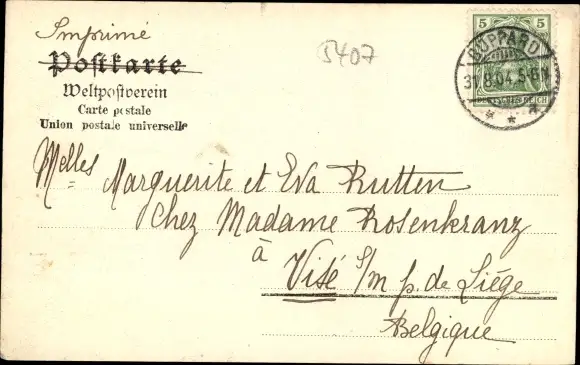 Imprimé
Postkarte
Weltpostverein
Carte postale
Union postale universelle
5407
5 5
DEUTSCHES REICH
BOPPARD
31.8.04.5-6N
Melles Marguerite et Eva Rutten
Chez Madame Rosenkranz
à
Visé s/m p. de Liége
Belgique